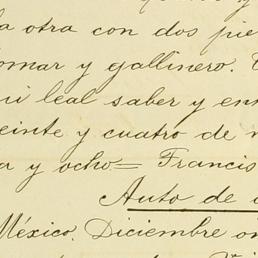 a otra con dos pie
omar y gallinero.
i leal saber y en
einte y cuatro de
a y ocho= Francis
Auto de
México, Diciembre on